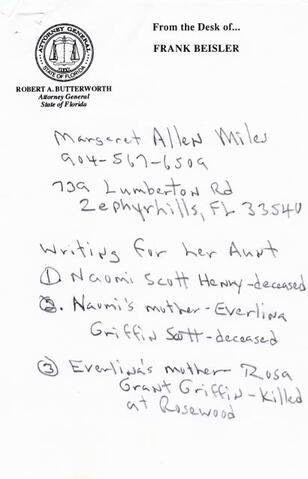 From the Desk of...
FRANK BEISLER
ATTORNEY GENERAL
STATE OF FLORIDA
ROBERT A. BUTTERWORTH
Attorney General
State of Florida
Margaret Allen Miles
904-567-6509
739 Lumberton Rd
Zephyrhills, FL 33540
Writing for her Aunt
① Naomi Scott Henry-deceased
②. Naomi's mother-Everlina
Griffin Scott-deceased
③ Everlina's mother Rosa
Grant Griffin-Killed
at Rosewood